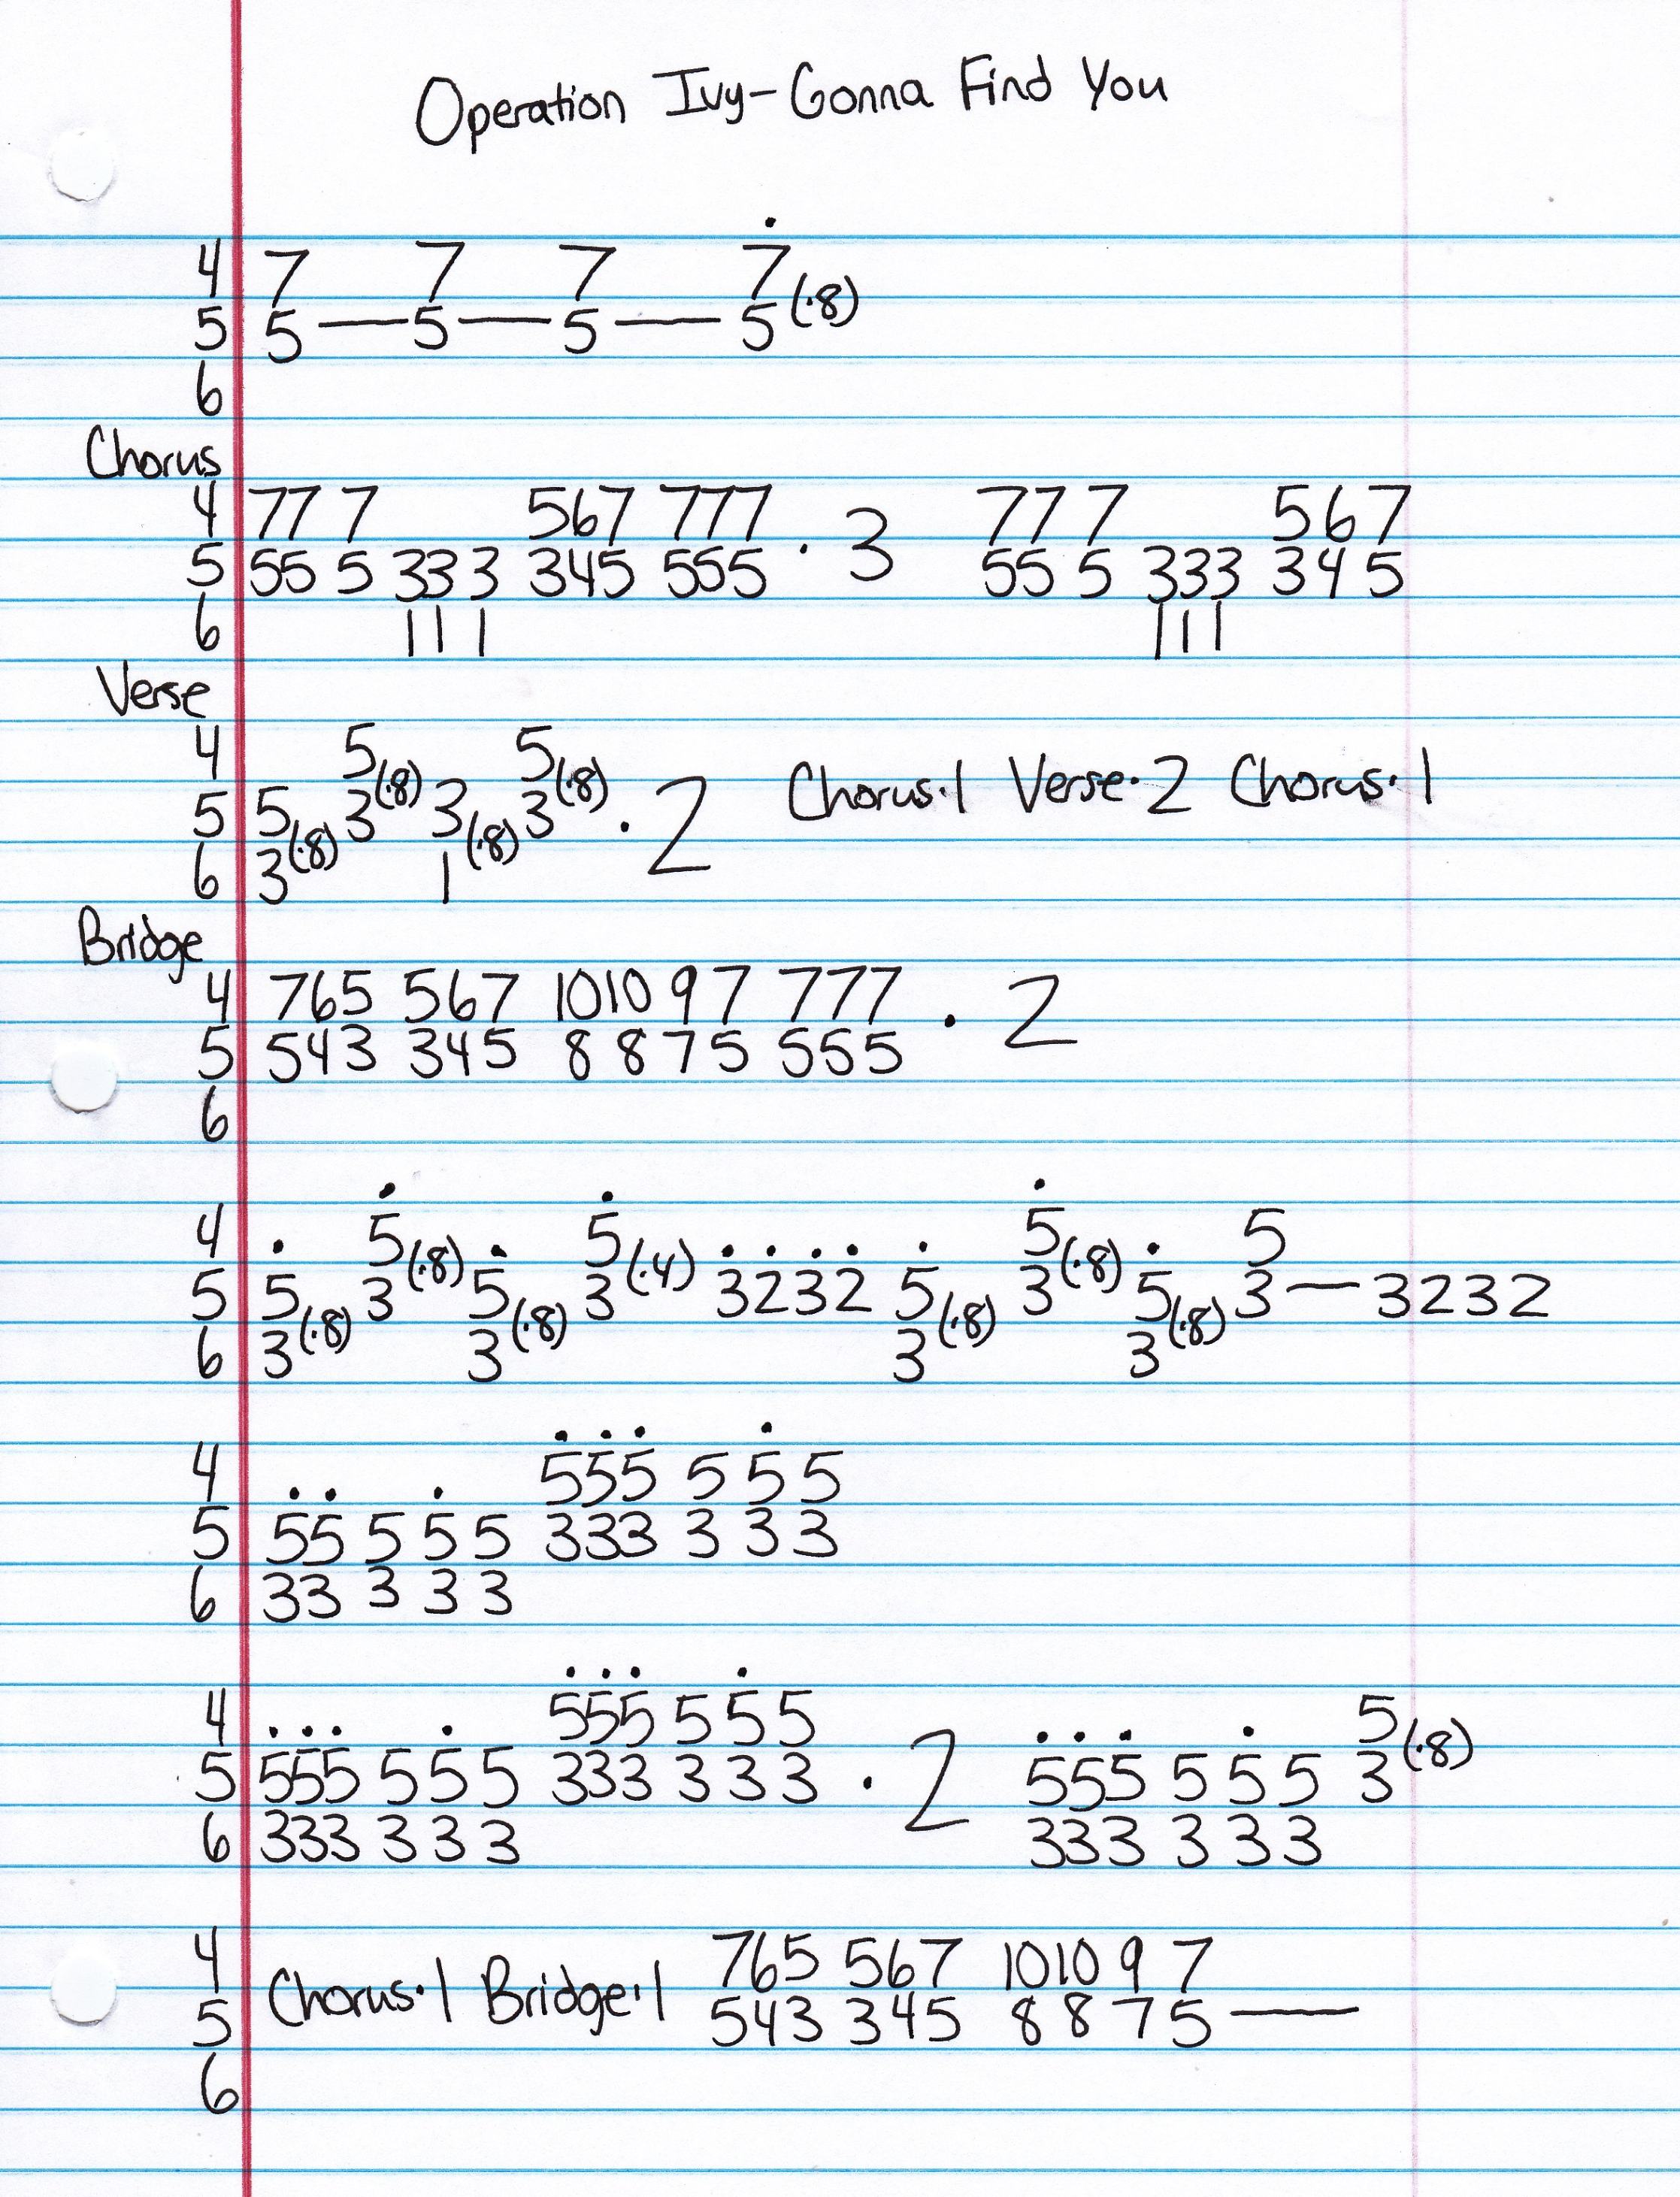 Operation Ivy - Gonna Find You
4 7 7 7 7
5 5 — 5 — 5 — 5 (·8)
6
Chorus
4 77 7 567 777 77 7 567
5 55 5 33 3 345 555 · 3 55 5 333 345
6 11 1 111
Verse
4 5 5
5 5 3 (·8) 3 3 (·8) · 2 Chorus·1 Verse·2 Chorus·1
6 3 (·8) 1 (·8)
Bridge
4 765 567 1010 9 7 777
5 543 345 8 8 7 5 555 · 2
6
4 5 5 5 5
5 5 3 (·8) 5 3 (·4) 3232 5 3 (·8) 5 3 — 3232
6 3 (·8) 3 (·8) 3 (·8) 3 (·8)
4 555 5 5 5
5 55 5 5 5 333 3 3 3
6 33 3 3 3
4 555 5 5 5 5
5 555 5 5 5 333 3 3 3 · 2 555 5 5 5 3 (·8)
6 333 3 3 3 333 3 3 3
4 765 567 1010 9 7
5 Chorus·1 Bridge·1 543 345 8 8 7 5 —
6